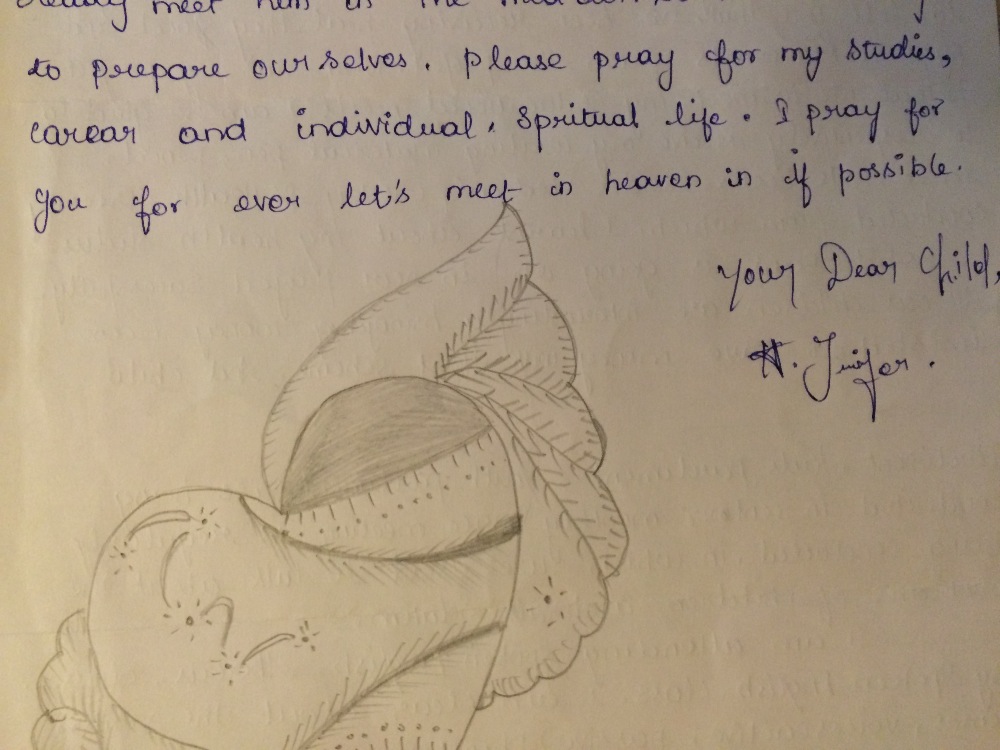 meet him in the
to prepare ourselves. please pray for my studies,
carear and individual, spritual life. I pray for
you for ever let's meet in heaven in if possible.
Your Dear Child,